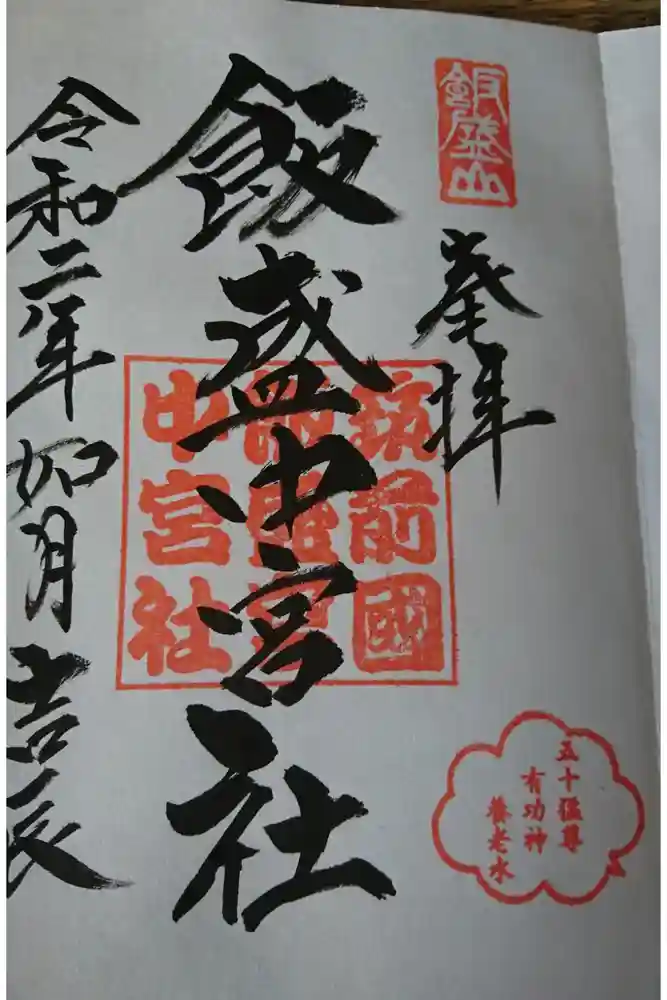 飯盛山
奉拝
五十猛尊
有功神
養老水
筑前國
中宮社
飯盛中宮社
令和二年如月吉辰